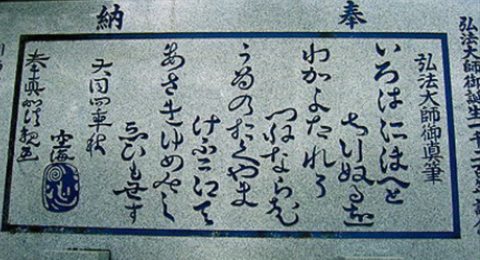 奉納
弘法大師御誕生一千二百年
弘法大師御真筆
いろはにほへと
ちりぬるを
わかよたれそ
つねならむ
うゐのおくやま
けふこえて
あさきゆめみし
ゑひもせす
大同四年秋
空海